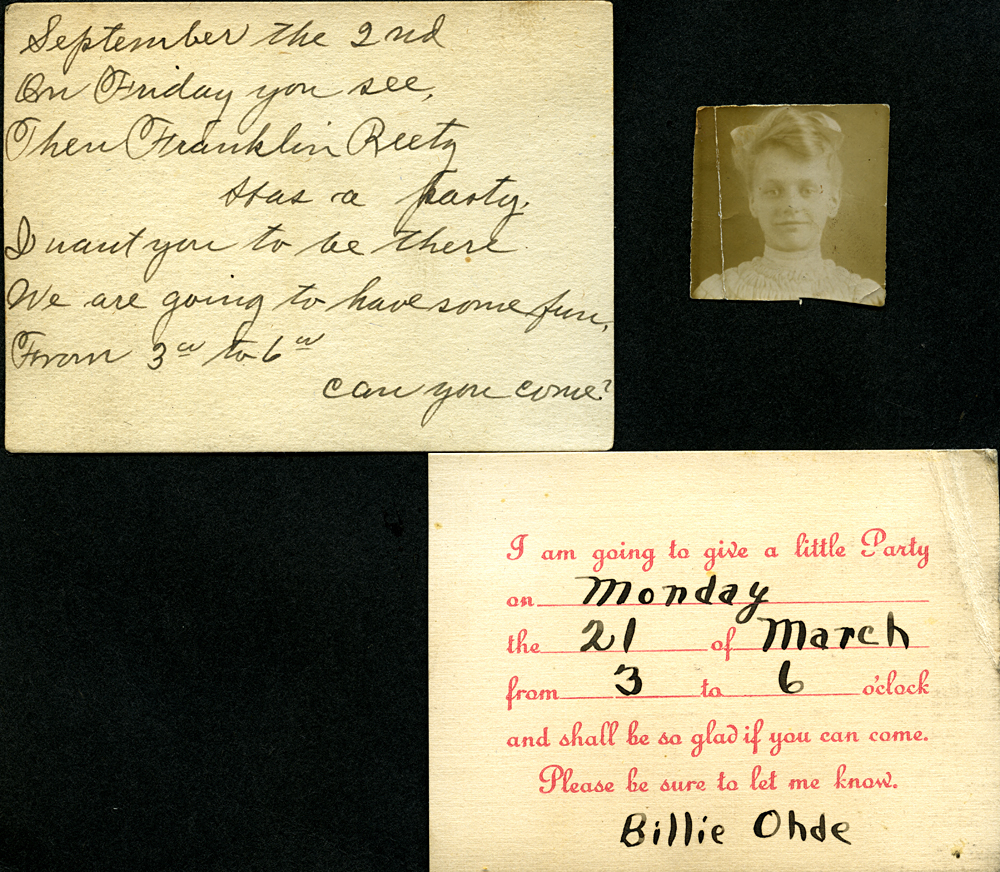 September the 2nd
On Friday you see,
Then Franklin Reetz
Has a party.
I want you to be there
We are going to have some fun,
From 3 to 6
can you come?
I am going to give a little Party
on Monday
the 21 of March
from 3 to 6 o'clock
and shall be so glad if you can come.
Please be sure to let me know.
Billie Ohde